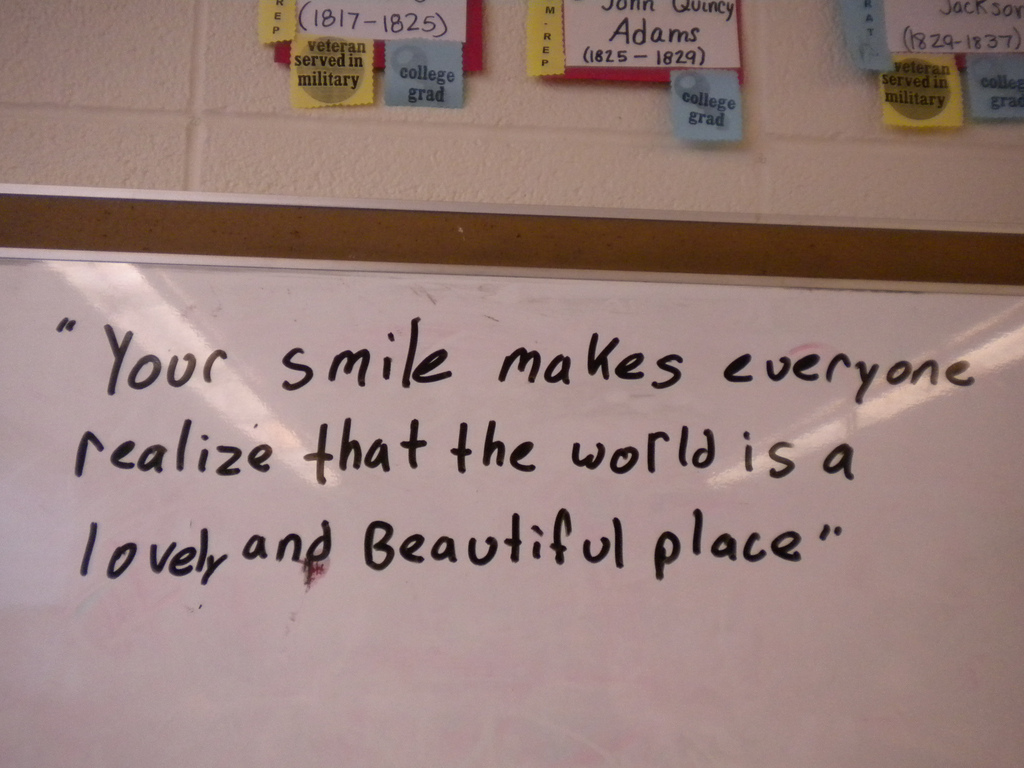 REP
(1817-1825)
veteran
served in
military
college
grad
M-REP
John Quincy
Adams
(1825-1829)
college
grad
RAT
Jackson
(1829-1837)
veteran
served in
military
college
grad
"Your smile makes everyone
realize that the world is a
lovely and Beautiful place"